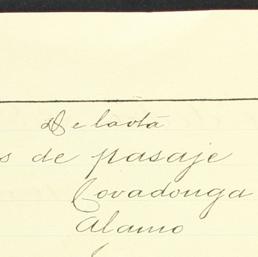 De la otá
s de pasaje
Covadonga
Alamo